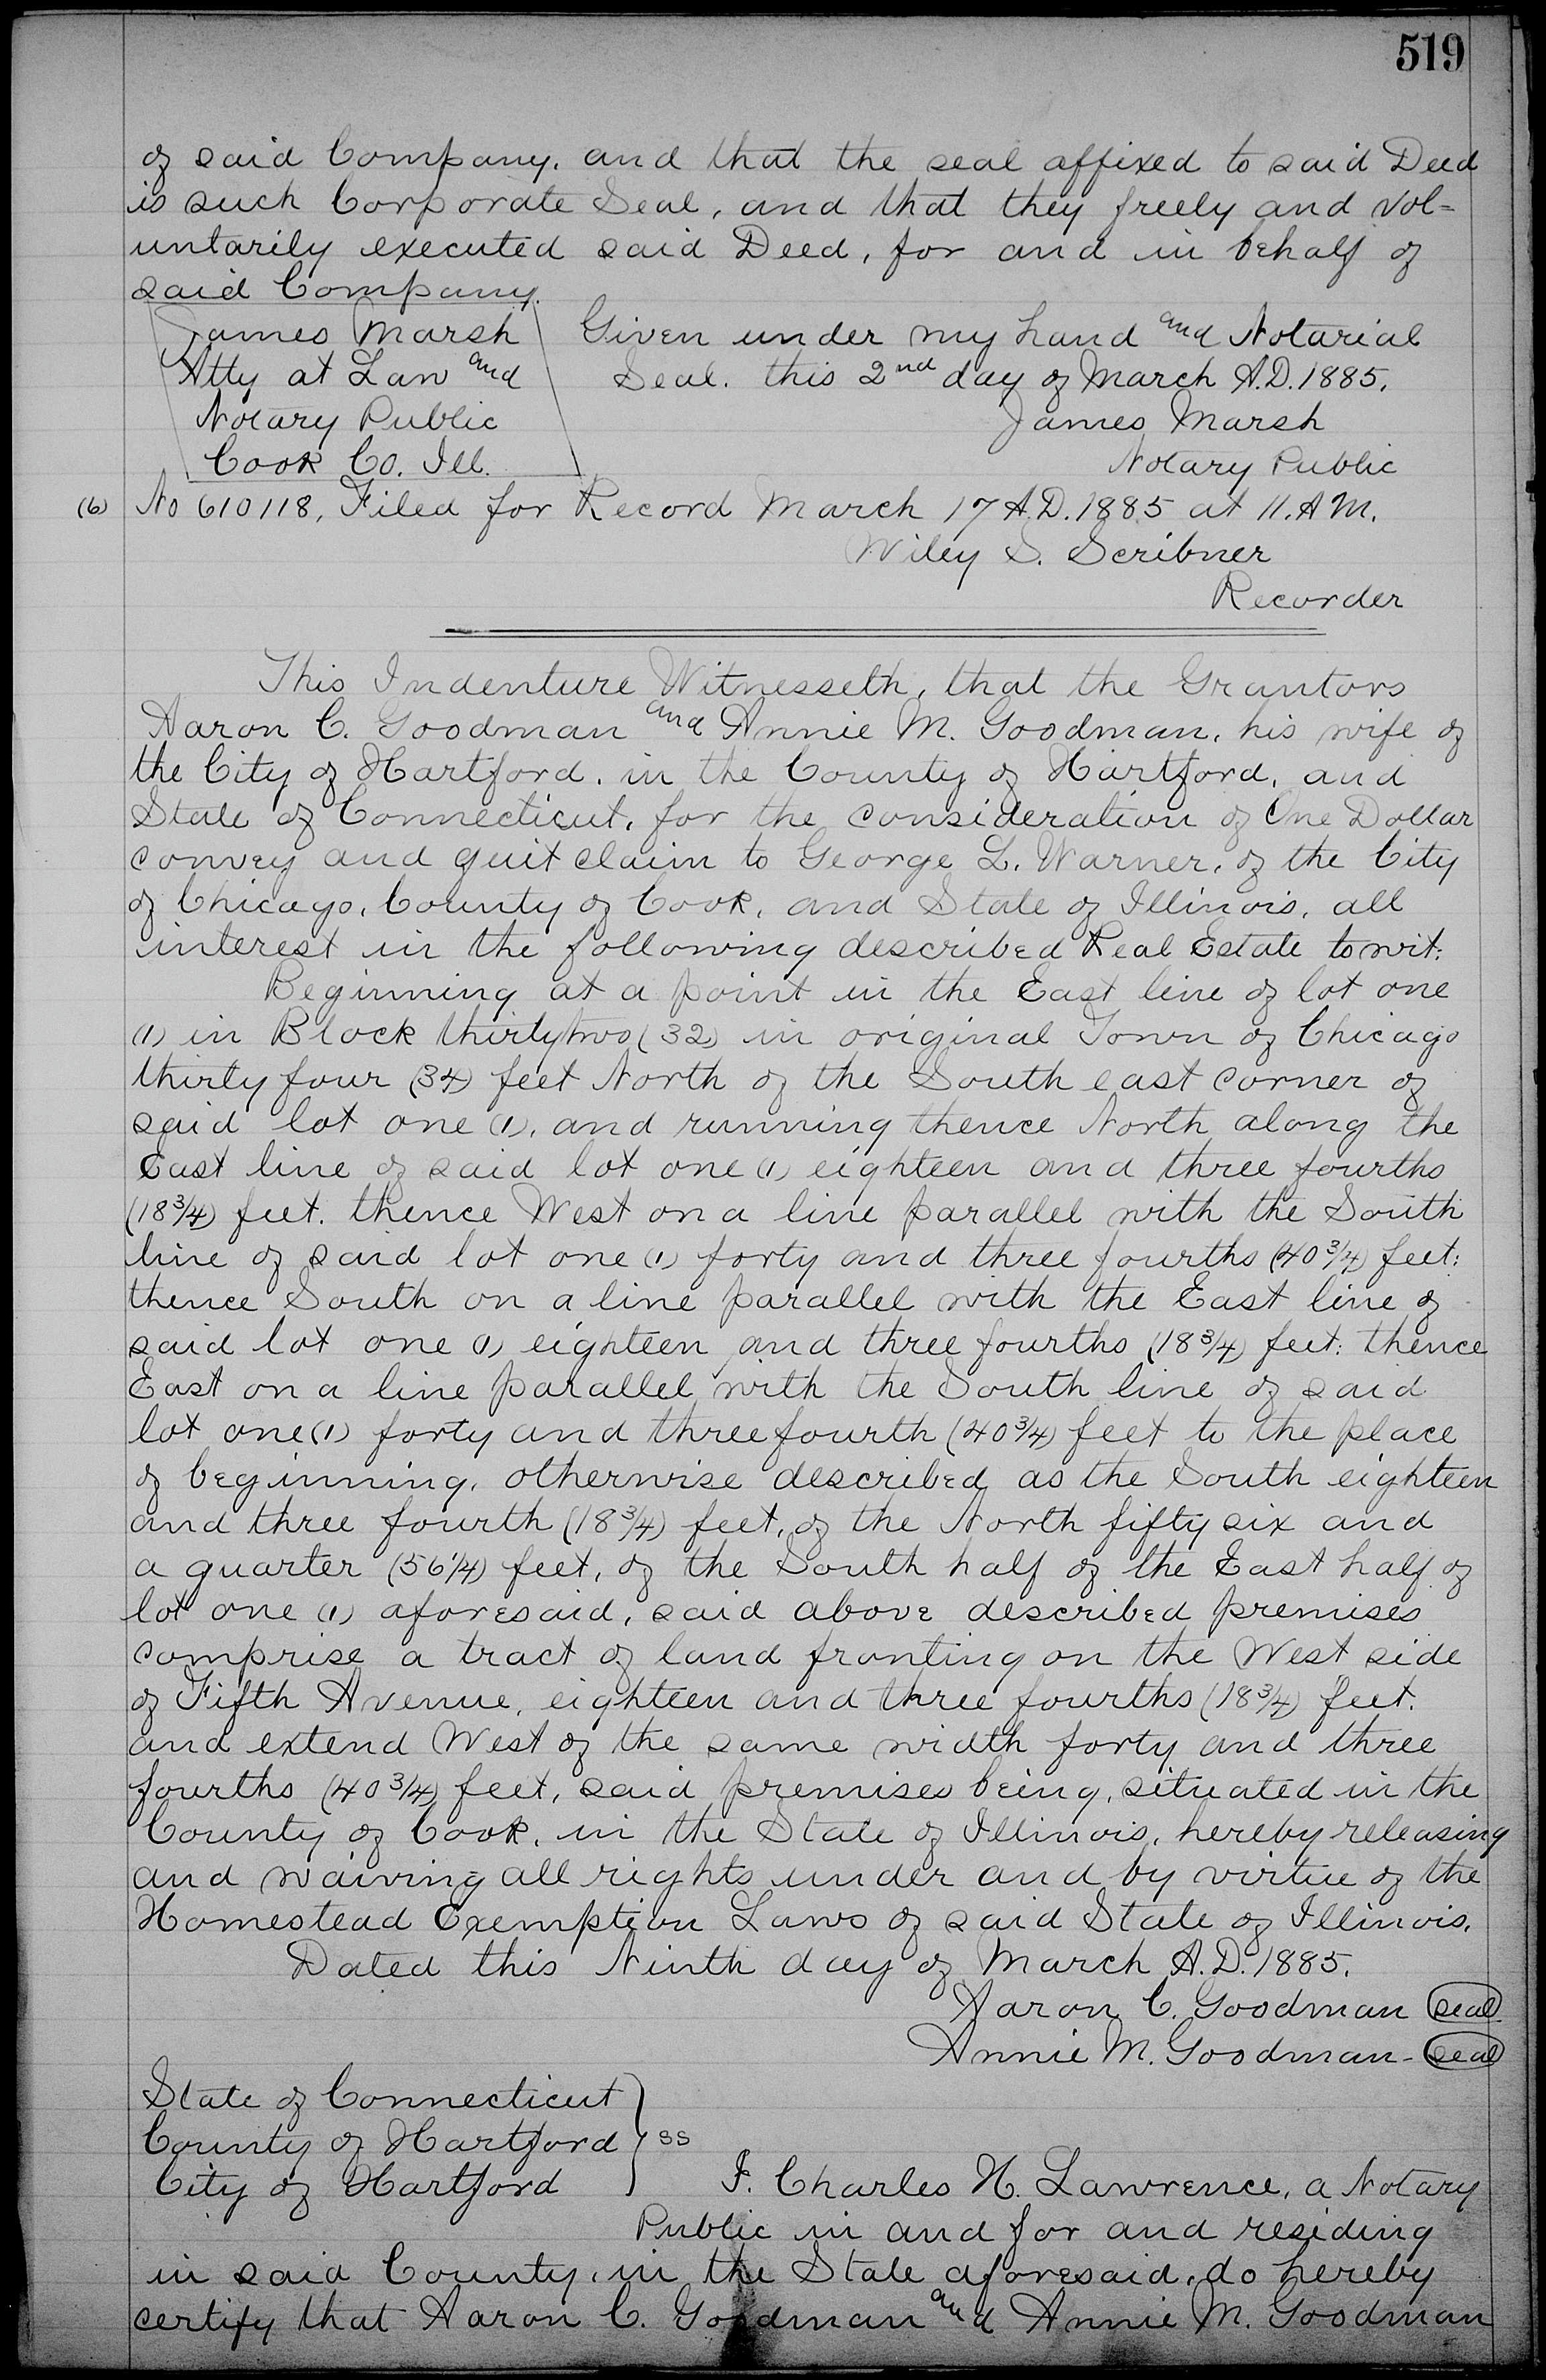 519
of said Company, and that the seal affixed to said Deed
is such Corporate Seal, and that they freely and vol=
untarily executed said Deed, for and in behalf of
said Company.
James Marsh
Atty at Law and
Notary Public
Cook Co. Ill.
Given under my hand and Notarial
Seal. this 2nd day of March A.D. 1885.
James Marsh
Notary Public
(6) No 610118, Filed for Record March 17 A.D. 1885 at 11. A M.
Wiley S. Scribner
Recorder
This Indenture Witnesseth, that the Grantors
Aaron C. Goodman and Annie M. Goodman, his wife of
the City of Hartford, in the County of Hartford, and
State of Connecticut, for the consideration of One Dollar
convey and quit claim to George L. Warner, of the City
of Chicago, County of Cook, and State of Illinois, all
interest in the following described Real Estate to wit:
Beginning at a point in the East line of lot one
(1) in Block thirty two (32) in original Town of Chicago
thirty four (34) feet North of the South east corner of
said lot one (1), and running thence North along the
East line of said lot one (1) eighteen and three fourths
(18 3/4) feet. thence West on a line parallel with the South
line of said lot one (1) forty and three fourths (40 3/4) feet:
thence South on a line parallel with the East line of
said lot one (1) eighteen and three fourths (18 3/4) feet: thence
East on a line parallel with the South line of said
lot one (1) forty and three fourth (40 3/4) feet to the place
of beginning, otherwise described as the South eighteen
and three fourth (18 3/4) feet, of the North fifty six and
a quarter (56 1/4) feet, of the South half of the East half of
lot one (1) aforesaid, said above described premises
comprise a tract of land fronting on the West side
of Fifth Avenue, eighteen and three fourths (18 3/4) feet.
and extend West of the same width forty and three
fourths (40 3/4) feet, said premises being, situated in the
County of Cook, in the State of Illinois, hereby releasing
and waiving all rights under and by virtue of the
Homestead Exemption Laws of said State of Illinois.
Dated this Ninth day of March A.D. 1885.
Aaron C. Goodman seal
Annie M. Goodman - seal
State of Connecticut
County of Hartford ss
City of Hartford
I. Charles H. Lawrence, a Notary
Public in and for and residing
in said County, in the State aforesaid, do hereby
certify that Aaron C. Goodman and Annie M. Goodman